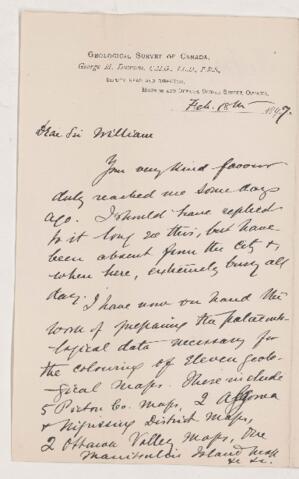 GEOLOGICAL SURVEY OF CANADA,
George M. Dawson, C.M.G., LL.D., F.R.S.,
DEPUTY HEAD AND DIRECTOR,
MUSEUM AND OFFICE, SUSSEX STREET, OTTAWA,
Feb. 18th 1897.
Dear Sir William
Your very kind favour
duly reached me some days
ago. I should have replied
to it long ere this, but have
been absent from the city &
when here, extremely busy all
day.
I have now on hand the
work of preparing the palaeonto-
logical data necessary for
the colouring of eleven geolo-
gical maps. These include
5 Pictou Co. maps, 2 Algoma
& Nipissing District Maps,
2 Ottawa Valley Maps, One
Manitoulin Island Map
&c &c.